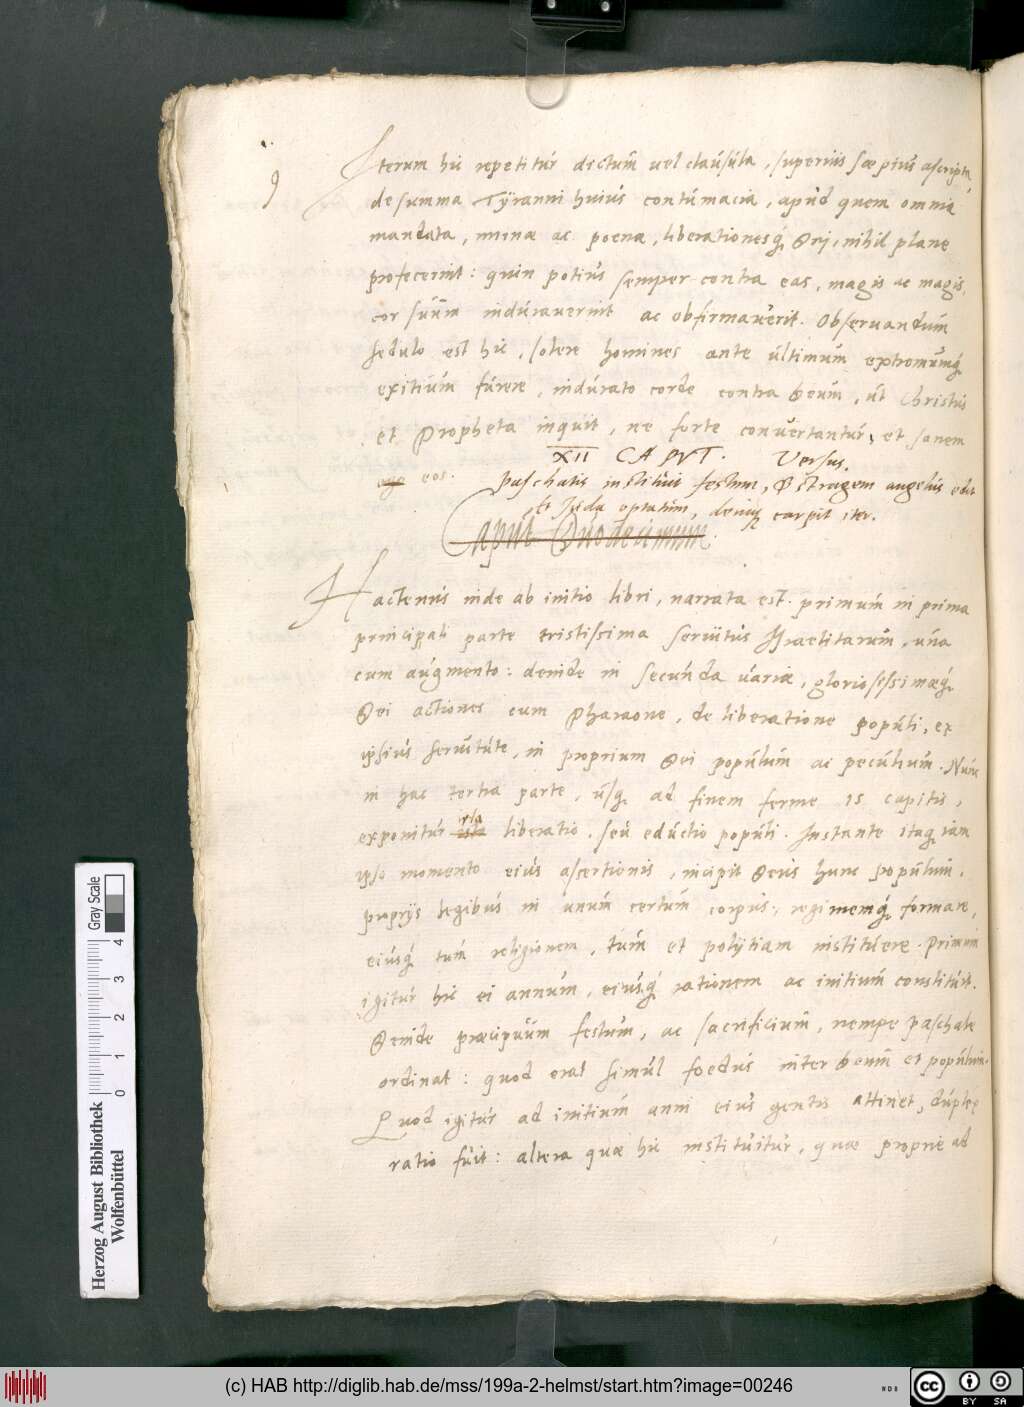 9
Iterum hic repetitur dictum uel clausula, superius sæpius ascripta,
de summa Tÿranni huius contumacia, apud quem omnia
mandata, minæ ac poenæ, liberationesq́ Dei, nihil plane
profecerint: quin potius semper contra eas, magis ac magis,
cor suum indurauerint ac obfirmauerit. Obseruandum
sedulo est hic, solere homines ante ultimum extremumq́
exitium furere, indurato corde contra Deum, ut Christus
et Propheta inquit, ne forte conuertantur, et sanem
ego eos.
XII CAPVT. Versus.
Paschatis instituit festum, & stragem angelus edit
Et Juda optatum, deniq carpit iter.
Caput Duodecimum.
Hactenus inde ab initio libri, narrata est primum in prima
principali parte tristissima seruitus Israelitarum, una
cum augmento: deinde in secunda uariæ, gloriosissimæq́
Dei actiones cum Pharaone, de liberatione populi, ex
ipsius seruitute, in proprium Dei populum ac peculium. Nunc
in hac tertia parte, usq ad finem ferme 15 capitis,
exponitur ista
liberatio. seu eductio populi. Instante itaq iam
ipso momento eius assertionis, incipit Deus hunc populum,
proprijs legibus in unum certum corpus, regimemq́ formare,
eiusq́ tum religionem, tum et politiam instituere. Primum
igitur hic ei annum, eiusq́ rationem ac initium constituit.
Deinde præcipuum festum, ac sacrificium, nempe paschale
ordinat: quod erat simul foedus inter Deum et populum.
Quod igitur ad initium anni eius gentis attinet, duplex
ratio fuit: altera quæ hic instituitur, quæ proprie ad
Herzog August Bibliothek
Wolfenbüttel
0 1 2 3 4
Gray Scale
(c) HAB http://diglib.hab.de/mss/199a-2-helmst/start.htm?image=00246
cc
BY SA